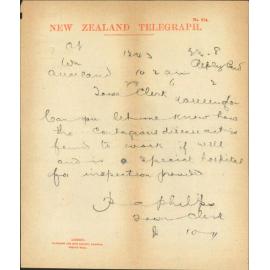 No. 614.
NEW ZEALAND TELEGRAPH.
Reply Pd
Auckland 10 2 am
Town Clerk Wellington
Can you let me know how
the contagious diseases act is
found to work if well
and is a special hospital
for inspection provided
Philips
Town Clerk